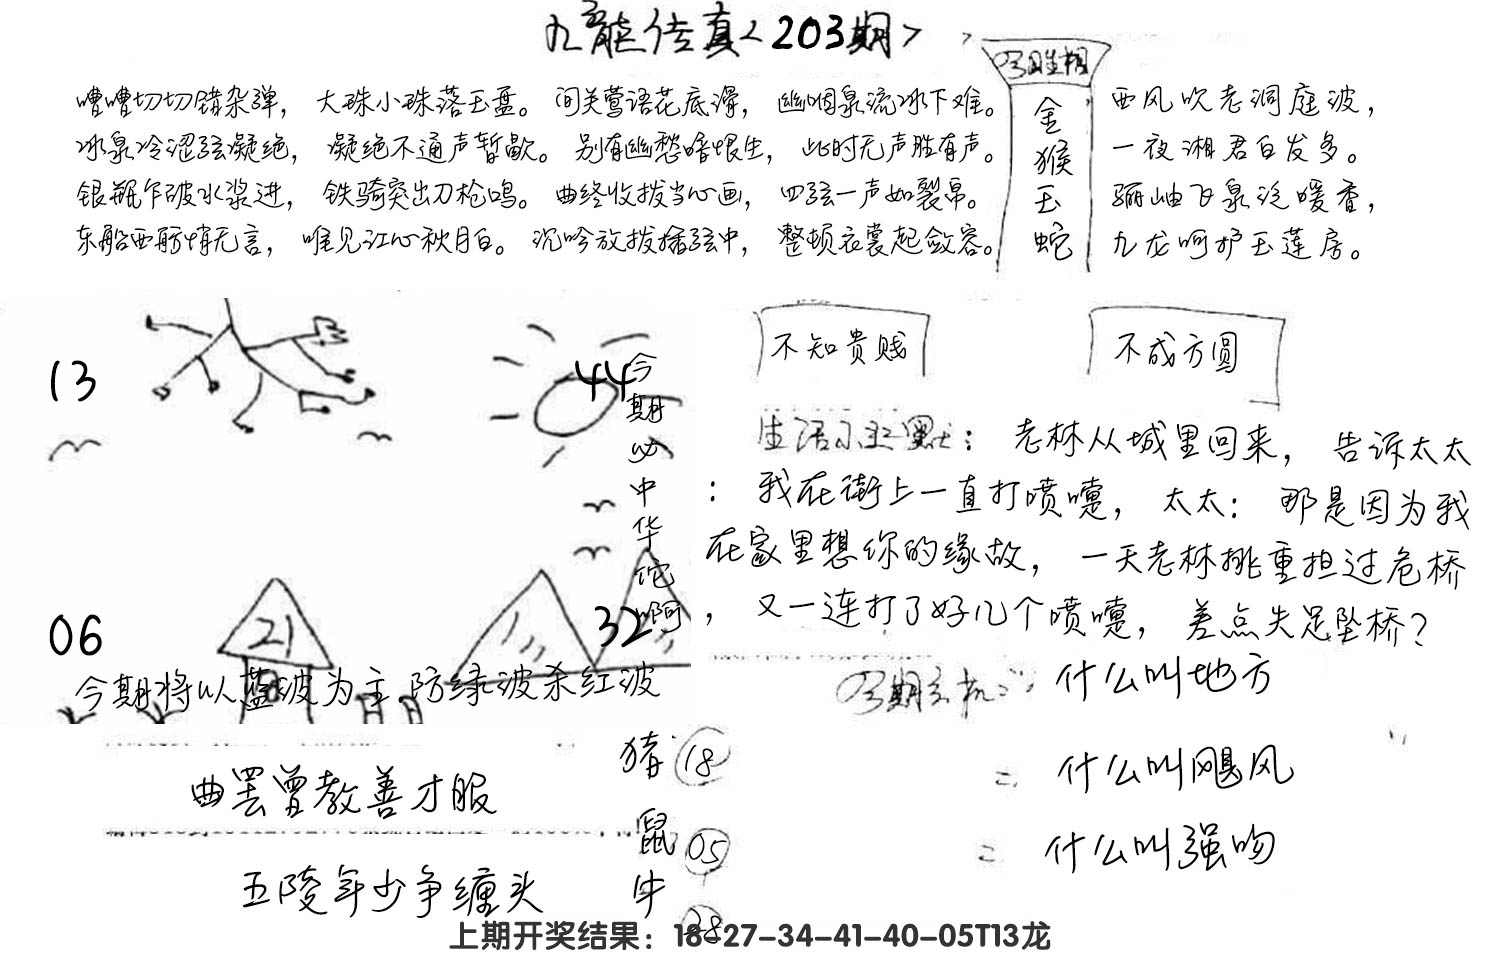 九龍传真<203期>
嘈嘈切切错杂弹，大珠小珠落玉盘。间关莺语花底滑，幽咽泉流冰下难。
冰泉冷涩弦凝绝，凝绝不通声暂歇。别有幽愁暗恨生，此时无声胜有声。
银瓶乍破水浆进，铁骑突出刀枪鸣。曲终收拨当心画，四弦一声如裂帛。
东船西舫悄无言，唯见江心秋月白。沉吟放拨插弦中，整顿衣裳起敛容。
今期生相
金
猴
玉
蛇
西风吹老洞庭波，
一夜湘君白发多。
骊岫飞泉泛暖香，
九龙呵护玉莲房。
13
44
06
21
32
今期必中华佗啊
今期将以蓝波为主防绿波杀红波
不知贵贱
不成方圆
生活小幽默：老林从城里回来，告诉太太
：我在街上一直打喷嚏，太太：那是因为我
在家里想你的缘故，一天老林挑重担过危桥
，又一连打了好几个喷嚏，差点失足坠桥？
今期玄机：什么叫地方
=什么叫飓风
=什么叫强吻
曲罢曾教善才服
五陵年少争缠头
猪 18
鼠 05
牛 28
上期开奖结果：18-27-34-41-40-05T13龙